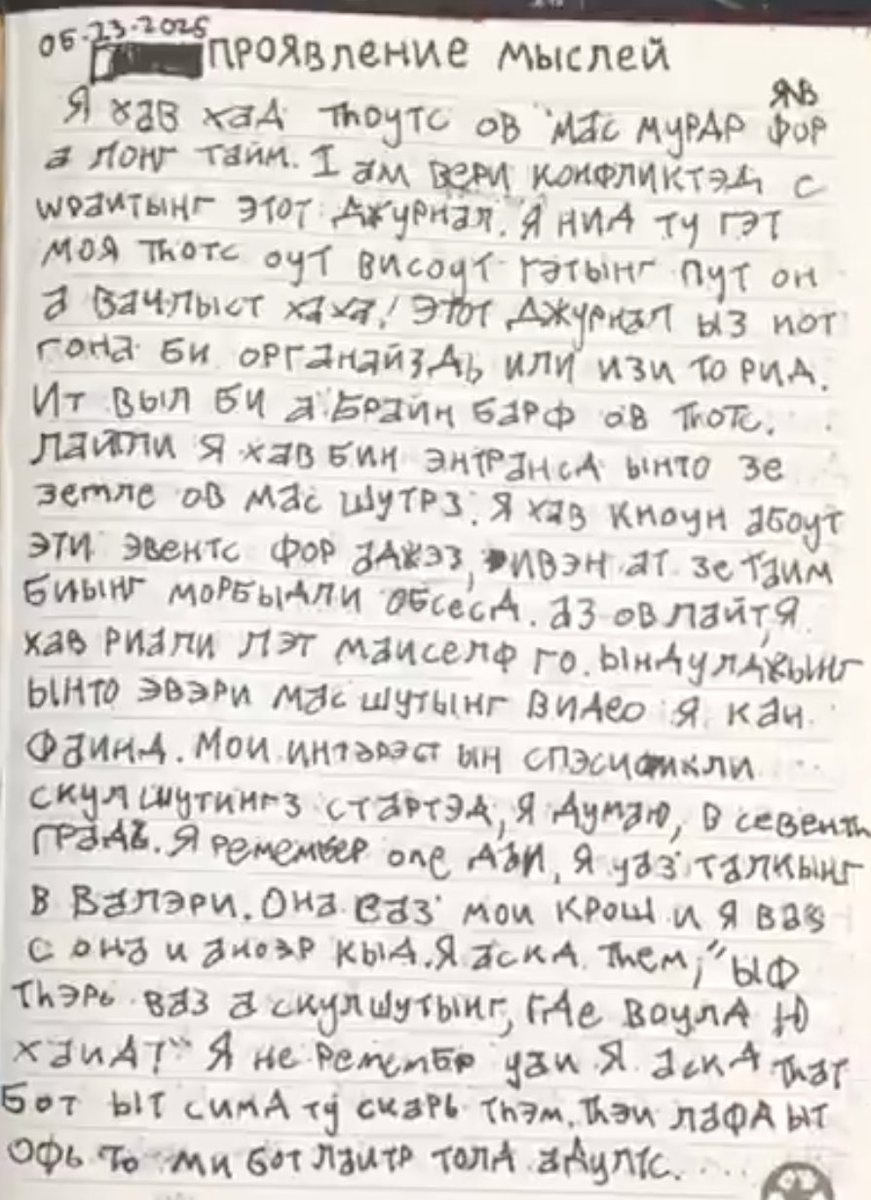 05-23-2025
ПРОЯВЛЕНИЕ МЫСЛЕЙ
Я ХАВ ХАД ThОУТС ОВ МАС МУРДР ФОР
а ЛОНГ ТАЙМ. I ам ВЕРИ КОНФЛИКТЭД С
WРАИТЫНГ ЭТОТ ДЖУРНАЛ. Я НИД ТУ ГЭТ
МОЯ ThОТС ОУТ ВИСОУТ ГЭТЫНГ ПУТ ОН
а ВАЧЛЫСТ ХАХА! ЭТОТ ДЖУРНАЛ ЫЗ НОТ
ГОНА БИ ОРГАНАЙЗДЬ ИЛИ ИЗИ ТО РИД.
ИТ ВЫЛ БИ а БРАЙН БАРФ ОВ ThОТС.
ЛАЙТЛИ Я ХАВ БИН ЭНТРАНСД ЫНТО ЗЕ
ОВ МАС ШУТРЗ. Я ХАВ КНОУН аБОУТ
ЭТИ ЭВЕНТС ФОР аДЖЭЗ, ИВЭН аТ ЗЕ ТАИМ
БИЫНГ МОРБЫДЛИ ОБСЕСД. аЗ ОВ ЛАЙТ, Я
ХАВ РИАЛИ ЛЭТ МАИСЕЛФ ГО. ЫНДУЛДЖЫНГ
ЫНТО ЭВЭРИ МАС ШУТЫНГ ВИДЕО Я КАН
ФАИНД. МОИ ИНТЭРЭСТ ЫН СПЭСИФИКЛИ
СКУЛ ШУТИНГЗ СТАРТЭД, Я ДУМАЮ, В СЕВЕНTh
ГРАДЬ. Я РЕМЕМБЕР ОНЕ ДАИ, Я УАЗ ТАЛКЫНГ
В ВАЛЭРИ. ОНА ВАЗ МОИ КРОШ И Я ВАS
С ОНА И аНОЭР КЫД. Я аСКД ThЕМ, "ЫФ
ThЭРЬ ВАЗ а СКУЛ ШУТЫНГ, ГДЕ ВОУЛД Ю
ХАИД?" Я НЕ РЕМЕМБР УАИ Я аСКД ThАТ
БОТ ЫТ СИМД ТУ СКАРЬ ThЭМ. ThЭИ ЛАФД ЫТ
ОФЬ ТО МИ БОТ ЛАИТР ТОЛД аДУЛТС.